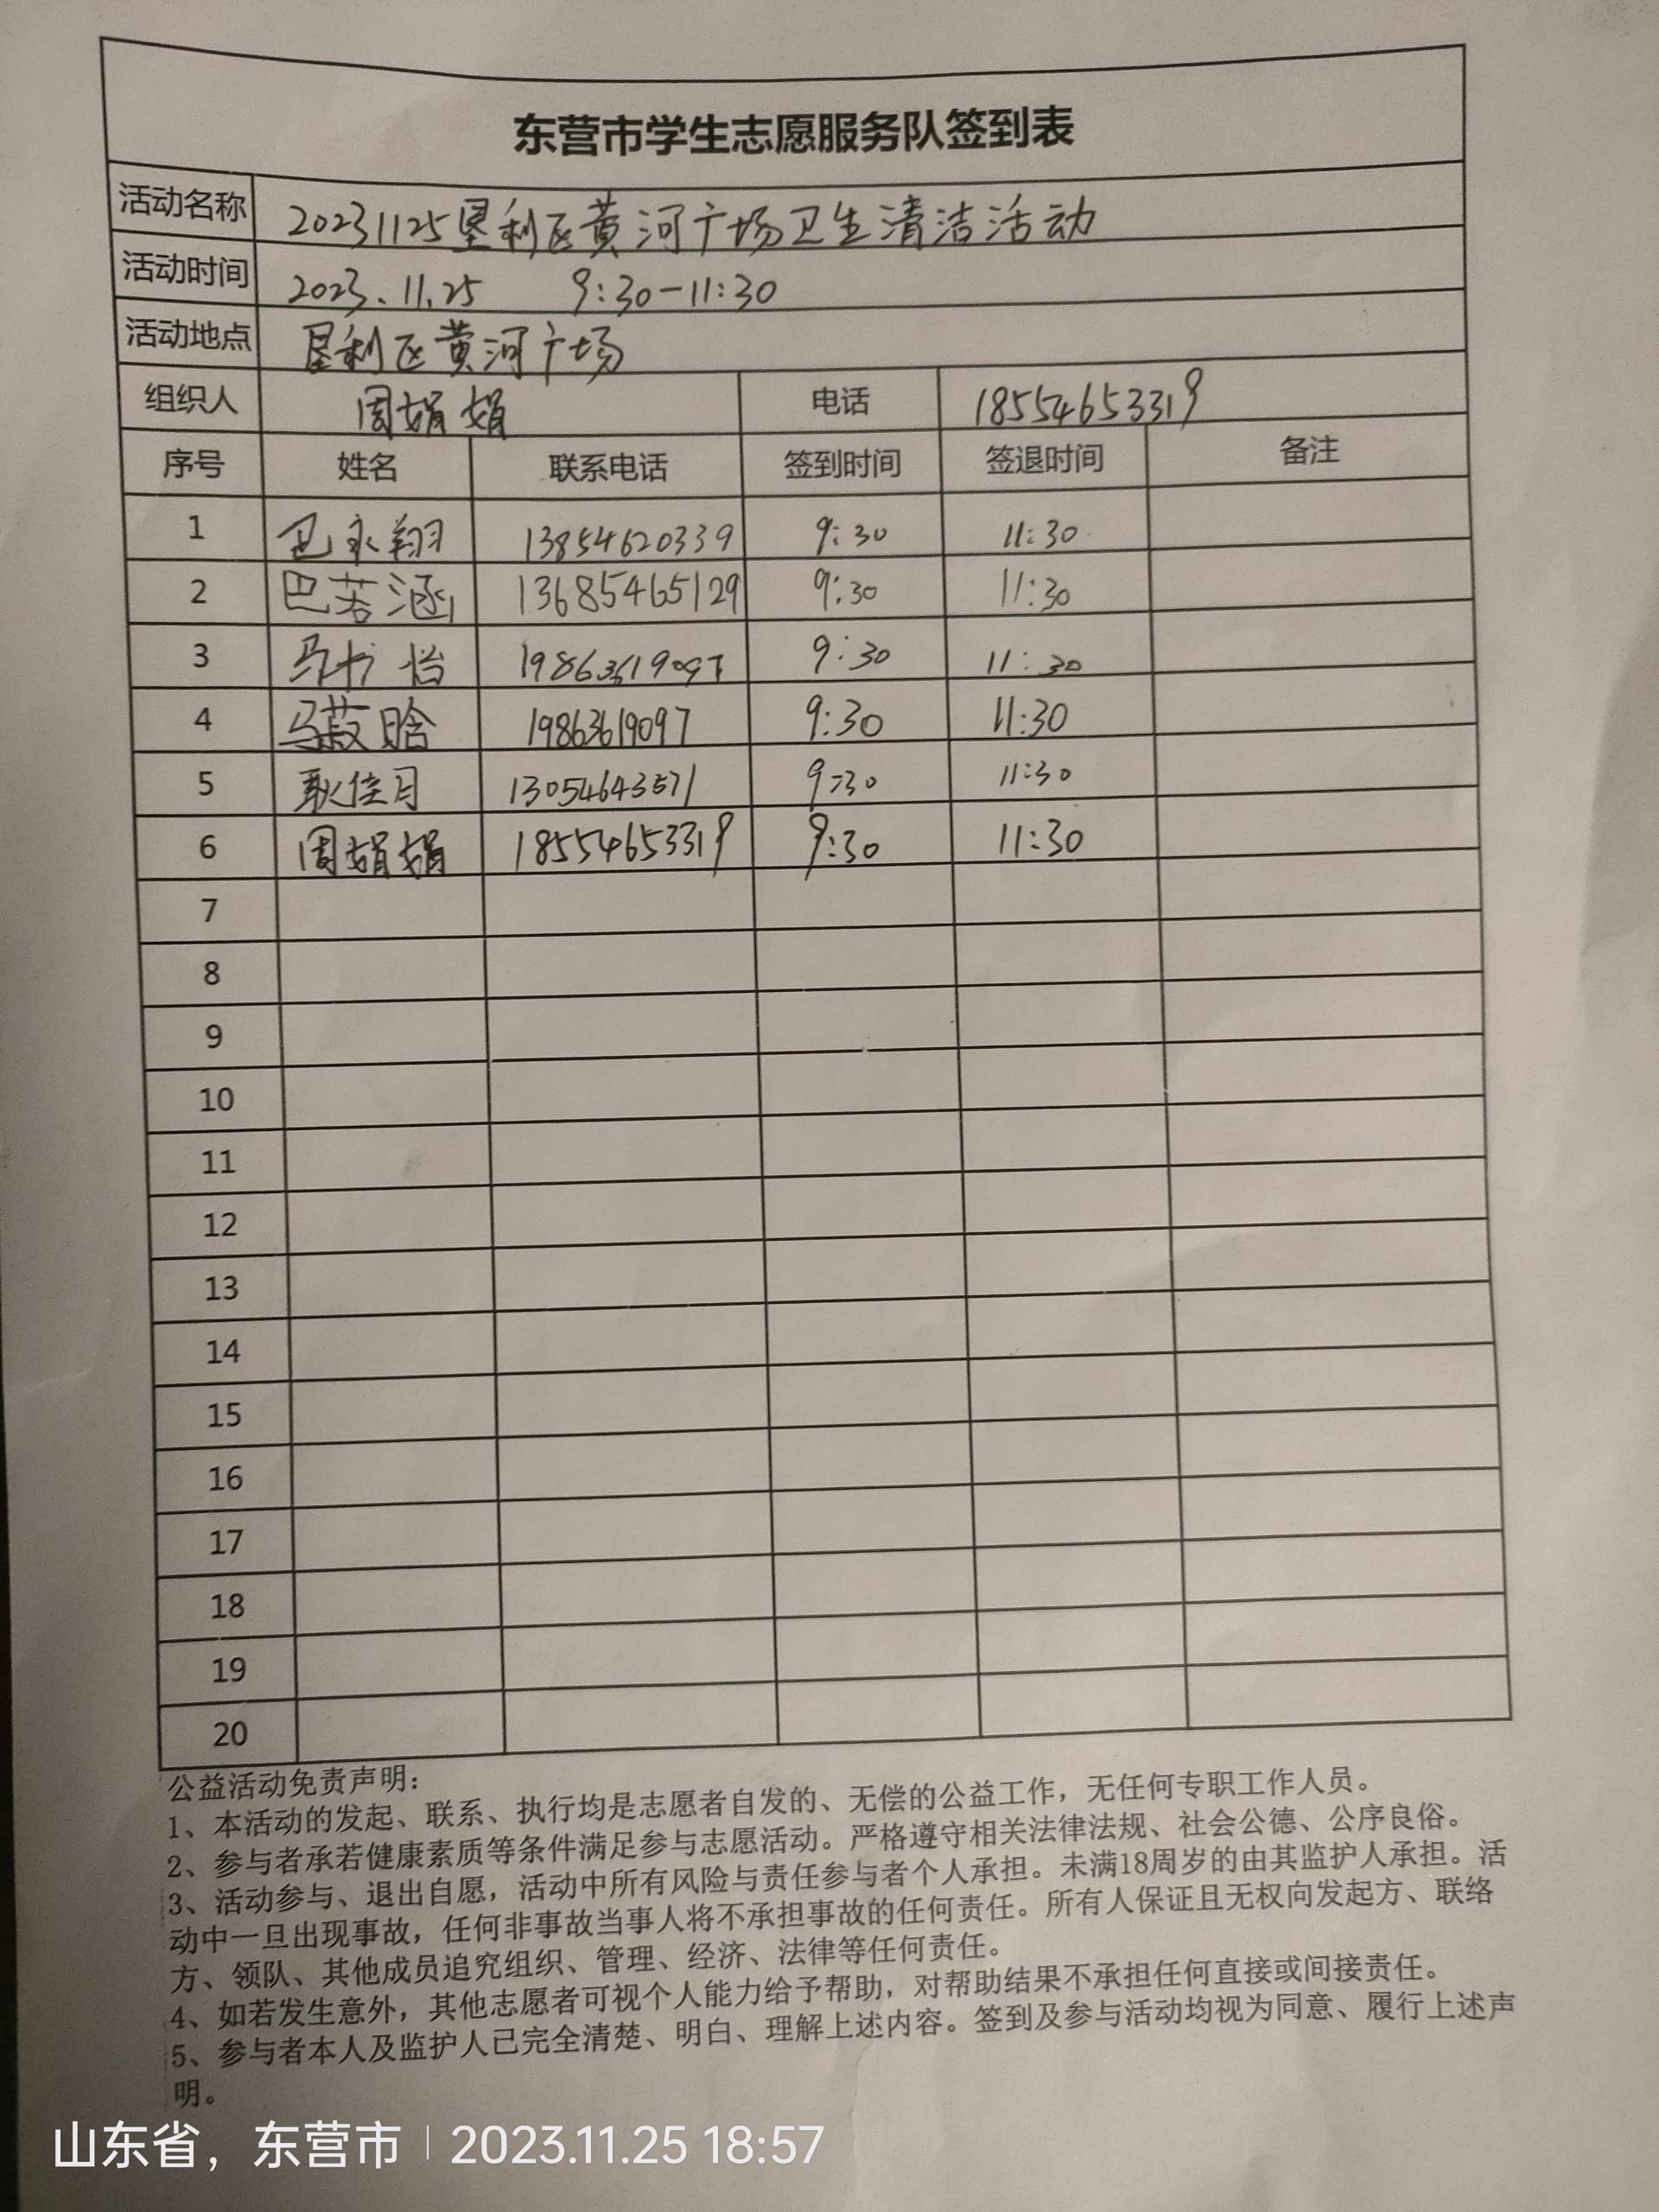 东营市学生志愿服务队签到表
活动名称 20231125垦利区黄河广场卫生清洁活动
活动时间 2023.11.25 9:30-11:30
活动地点 垦利区黄河广场
组织人 周娟娟 电话 18554653319
序号 姓名 联系电话 签到时间 签退时间 备注
1 巴永翔 13854620339 9:30 11:30
2 巴若涵 13685465129 9:30 11:30
3 马书怡 19863619097 9:30 11:30
4 马菽晗 19863619097 9:30 11:30
5 耿佳月 13054643571 9:30 11:30
6 周娟娟 18554653319 9:30 11:30
7
8
9
10
11
12
13
14
15
16
17
18
19
20
公益活动免责声明：
1、本活动的发起、联系、执行均是志愿者自发的、无偿的公益工作，无任何专职工作人员。
2、参与者承若健康素质等条件满足参与志愿活动。严格遵守相关法律法规、社会公德、公序良俗。
3、活动参与、退出自愿，活动中所有风险与责任参与者个人承担。未满18周岁的由其监护人承担。活
动中一旦出现事故，任何非事故当事人将不承担事故的任何责任。所有人保证且无权向发起方、联络
方、领队、其他成员追究组织、管理、经济、法律等任何责任。
4、如若发生意外，其他志愿者可视个人能力给予帮助，对帮助结果不承担任何直接或间接责任。
5、参与者本人及监护人已完全清楚、明白、理解上述内容。签到及参与活动均视为同意、履行上述声
明。
山东省，东营市 | 2023.11.25 18:57